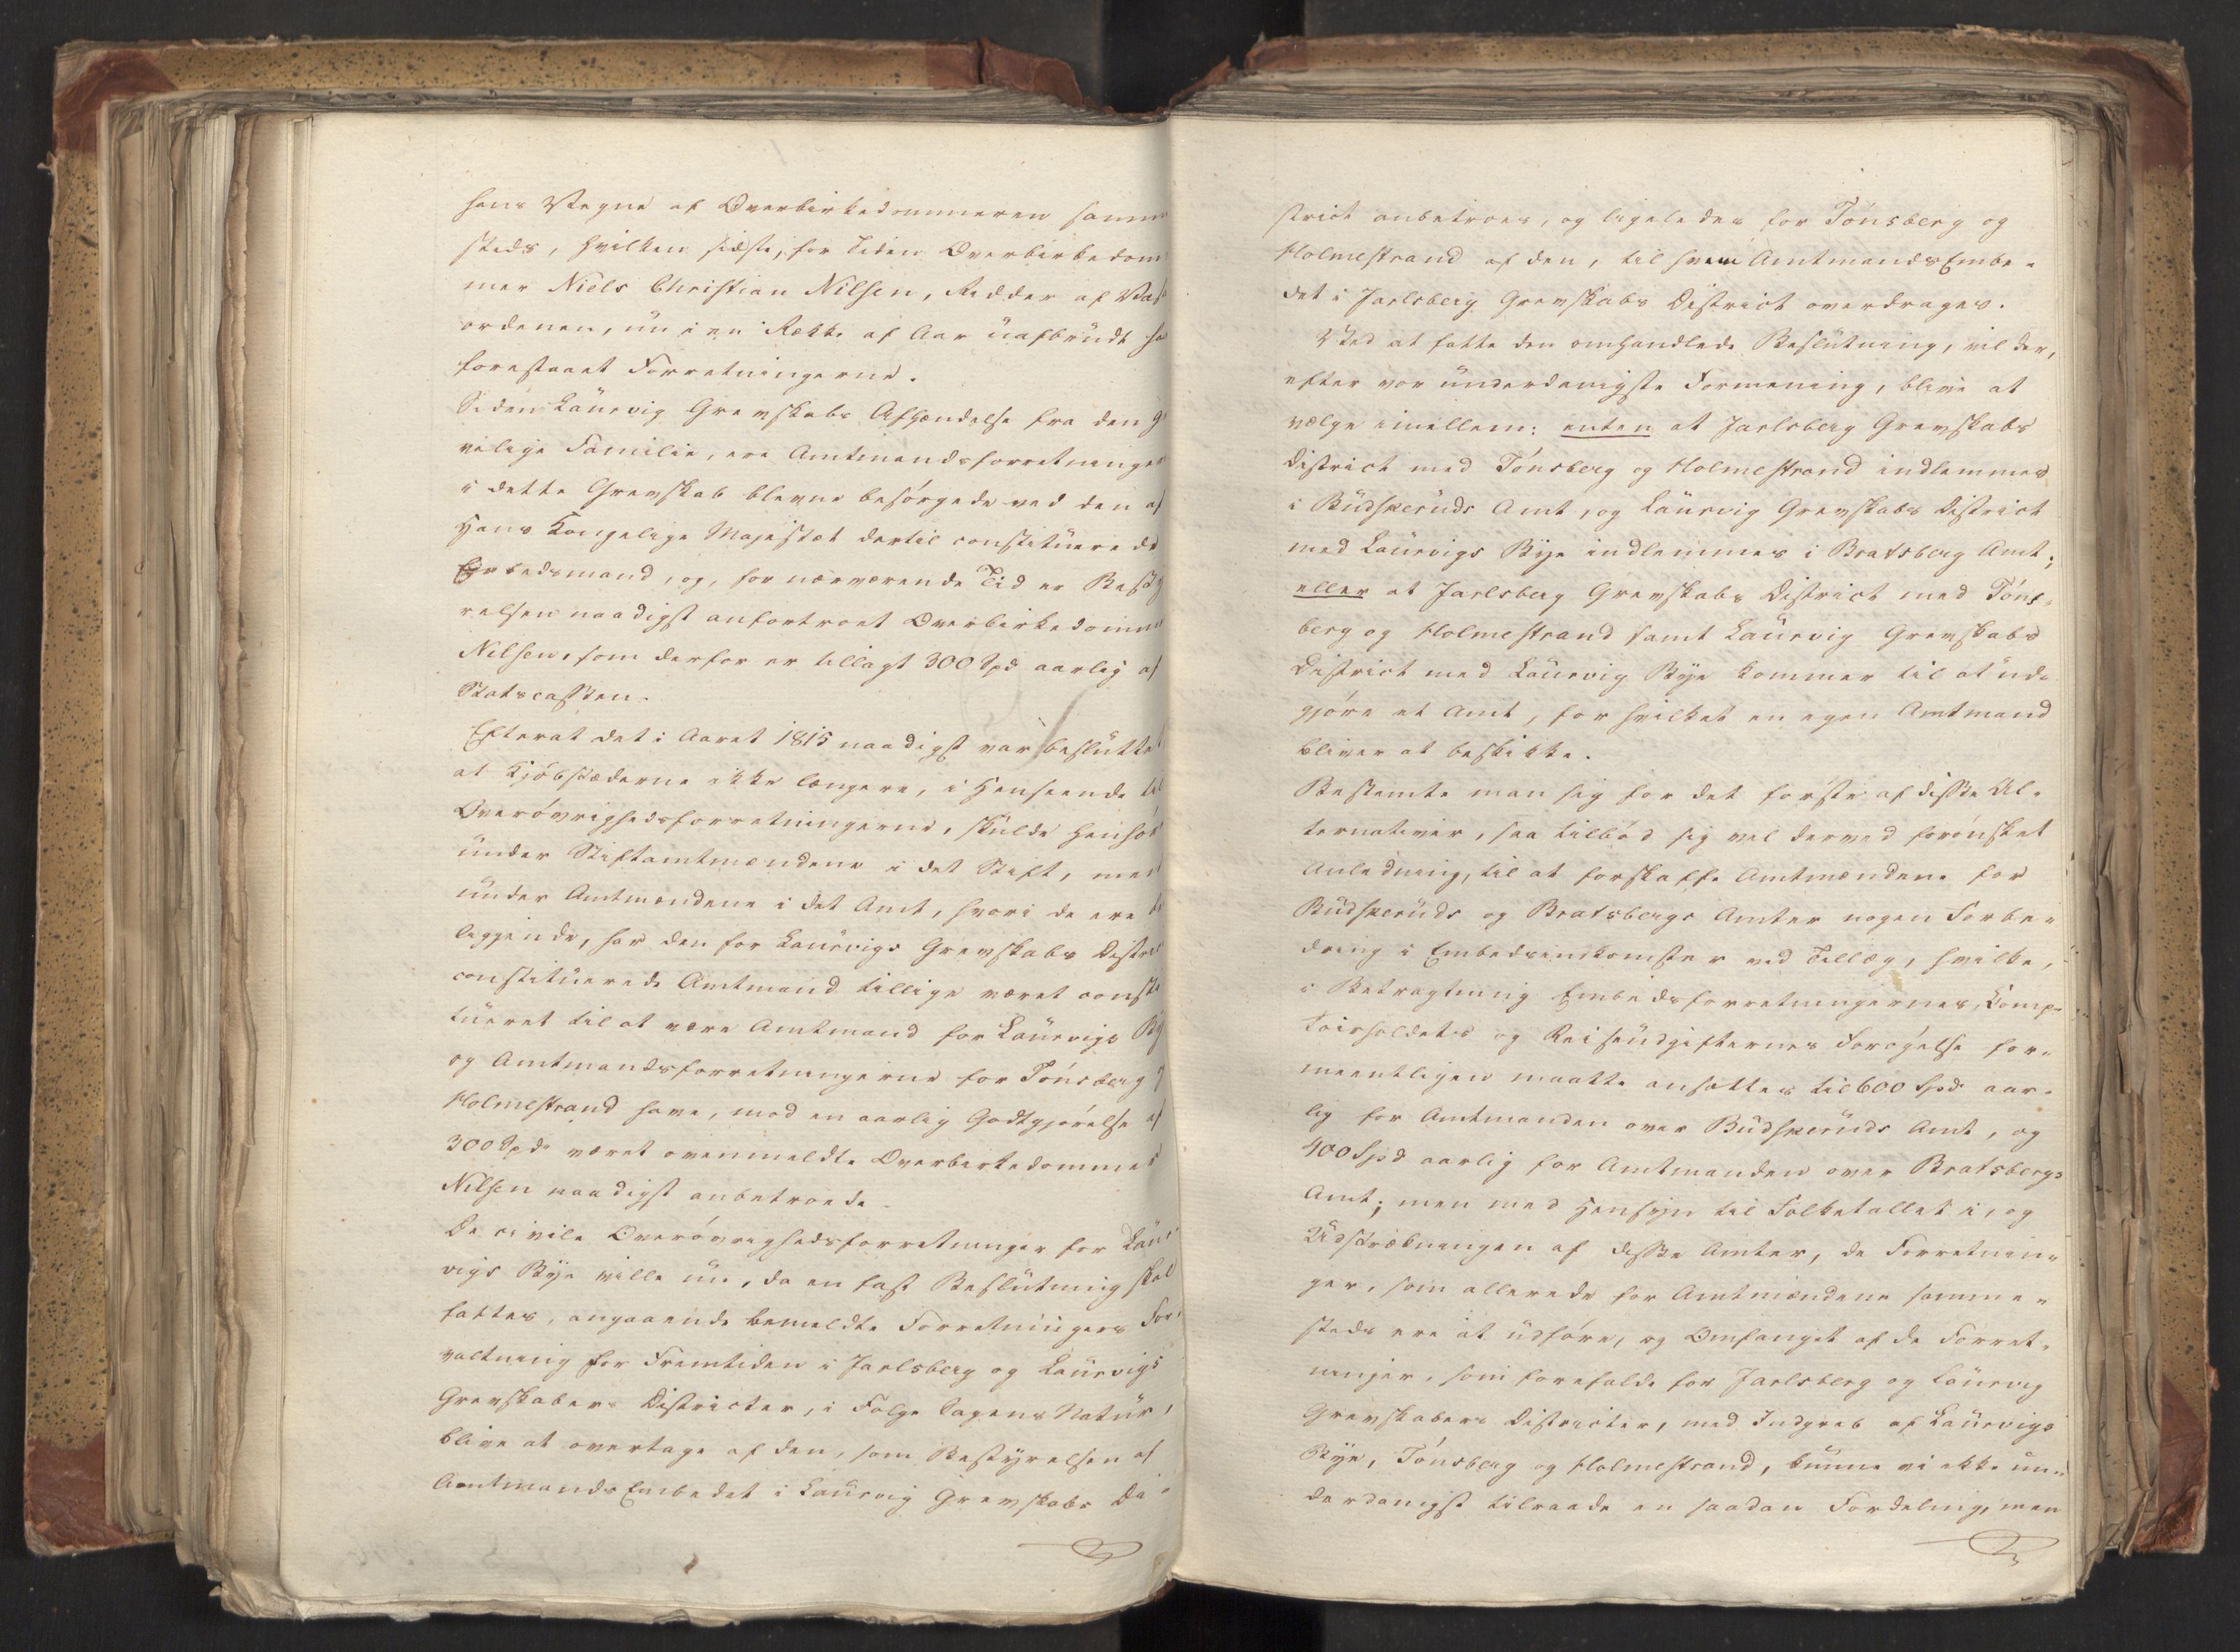 hans Vegne af Overbirkedommeren samme
steds, hvilken sidste, for Tiden Overbirkedom
mer Niels Christian Nilsen, Ridder af Vasa
ordenen, nu i en Række af Aar uafbrudt har
forestaaet Forretningerne.
Siden Laurvig Grevskabs Afhændelse fra den gre
velige Familie, ere Amtmandsforretningerne
i dette Grevskab blevne besørgede ved den af
Hans Kongelige Majestæt dertil constituerede
Embedsmand, og, for nærværende Tid er Besty
relsen naadigst anfortroet Overbirkedommer
Nilsen, som derfor er tillagt 300 Spd aarlig af
Statscassen.
Efterat det i Aaret 1815 naadigst var besluttet
at Kjøbstæderne ikke længere, i Henseende til
Overøvrighedsforretningerne, skulde henhøre
under Stiftamtmændene i det Stift, men
under Amtmændene i det Amt, hvori de ere be
liggende, har den for Laurvigs Grevskabs District
constituerede Amtmand tillige været consti
tueret til at være Amtmand for Laurvigs By
og Amtmandsforretningerne for Tønsberg og
Holmestrand have, mod en aarlig Godtgjørelse af
300 Spd. været ovenmeldte Overbirkedommer
Nilsen naadigst anbetroede.
De civile Overøvrighedsforretninger for Laur-
vigs Bye ville nu, da en fast Beslutning skal
fattes, angaaende bemeldte Forretningers For-
valtning for Fremtiden i Jarlsberg og Laurvigs
Grevskabers Districter, i Følge Sagens Natur,
blive at overtage af den, som Bestyrelsen af
AmtmandsEmbedet i Laurvig Grevskabs Di-
strict anbetroes, og ligeledes for Tønsberg og
Holmestrand af den, til hvem AmtmandsEmbe-
det i Jarlsberg Grevskabs District overdrages.
Ved at fatte den omhandlede Beslutning, vil der,
efter vor underdanigste Formening, blive at
vælge imellem: enten at Jarlsberg Grevskabs
District med Tønsberg og Holmestrand indlemmes
i Budskeruds Amt, og Laurvig Grevskabs District
med Laurvigs Bye indlemmes i Bratsberg Amt;
eller at Jarlsberg Grevskabs District med Tøns-
berg og Holmestrand samt Laurvig Grevskabs
District med Laurvig Bye kommer til at ud-
gjøre et Amt, for hvilket en egen Amtmand
bliver at beskikke.
Bestemte man sig for det første af disse Al-
ternativer, saa tilbød sig vel derved forønsket
Anledning, til at forskaffe Amtmændene for
Budskeruds og Bratsbergs Amter nogen Forbe-
dring i Embedsindkomster ved Tillæg, hvilke,
i Betragtning Embedsforretningernes, Comp-
toirholdets og Reiseudgifternes Forøgelse for-
meentligen maatte ansættes til 600 Spd. aar-
lig for Amtmanden over Budskeruds Amt, og
400 Spd aarlig for Amtmanden over Bratsbergs
Amt; men med Hensyn til Folketallet i, og
Udstrækningen af disse Amter, de Forretnin-
ger, som allerede for Amtmændene samme-
steds ere at udføre, og Omfanget af de Forret-
ninger, som forefalde for Jarlsberg og Laurvig
Grevskabers Districter, med Indgreb af Laurvigs
Bye, Tønsberg og Holmestrand, kunne vi ikke un-
derdanigst tilraade en saadan Fordeling, men